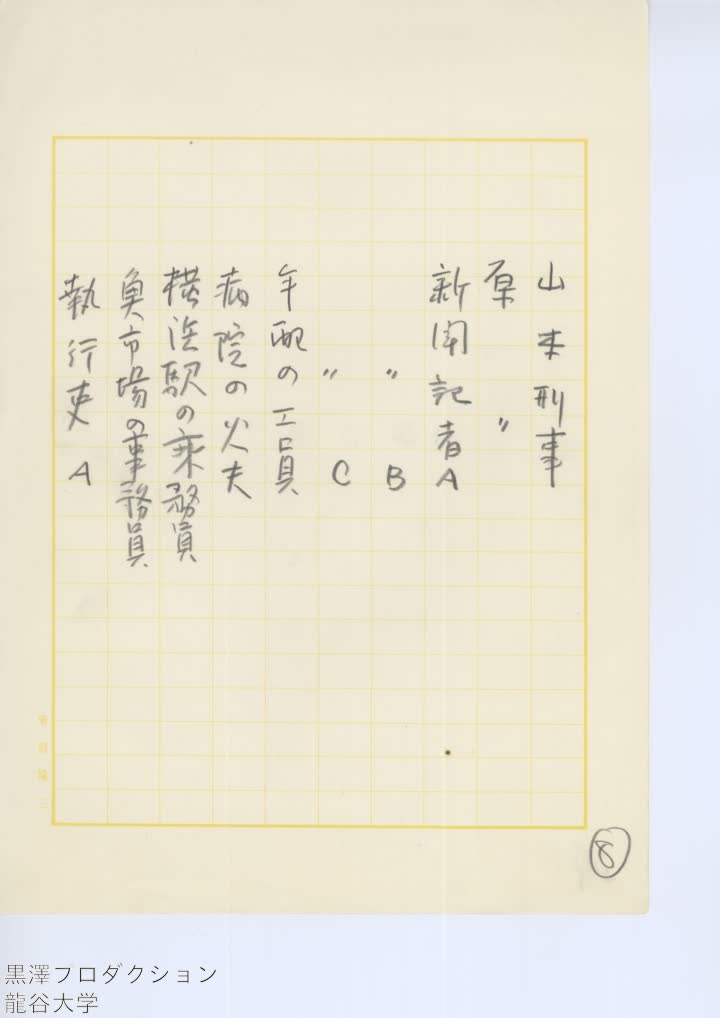 山本刑事
原 〃
新聞記者A
〃 B
〃 C
年配の工員
病院の火夫
横浜駅の乗務員
魚市場の事務員
執行吏 A
8
黒澤プロダクション
龍谷大学